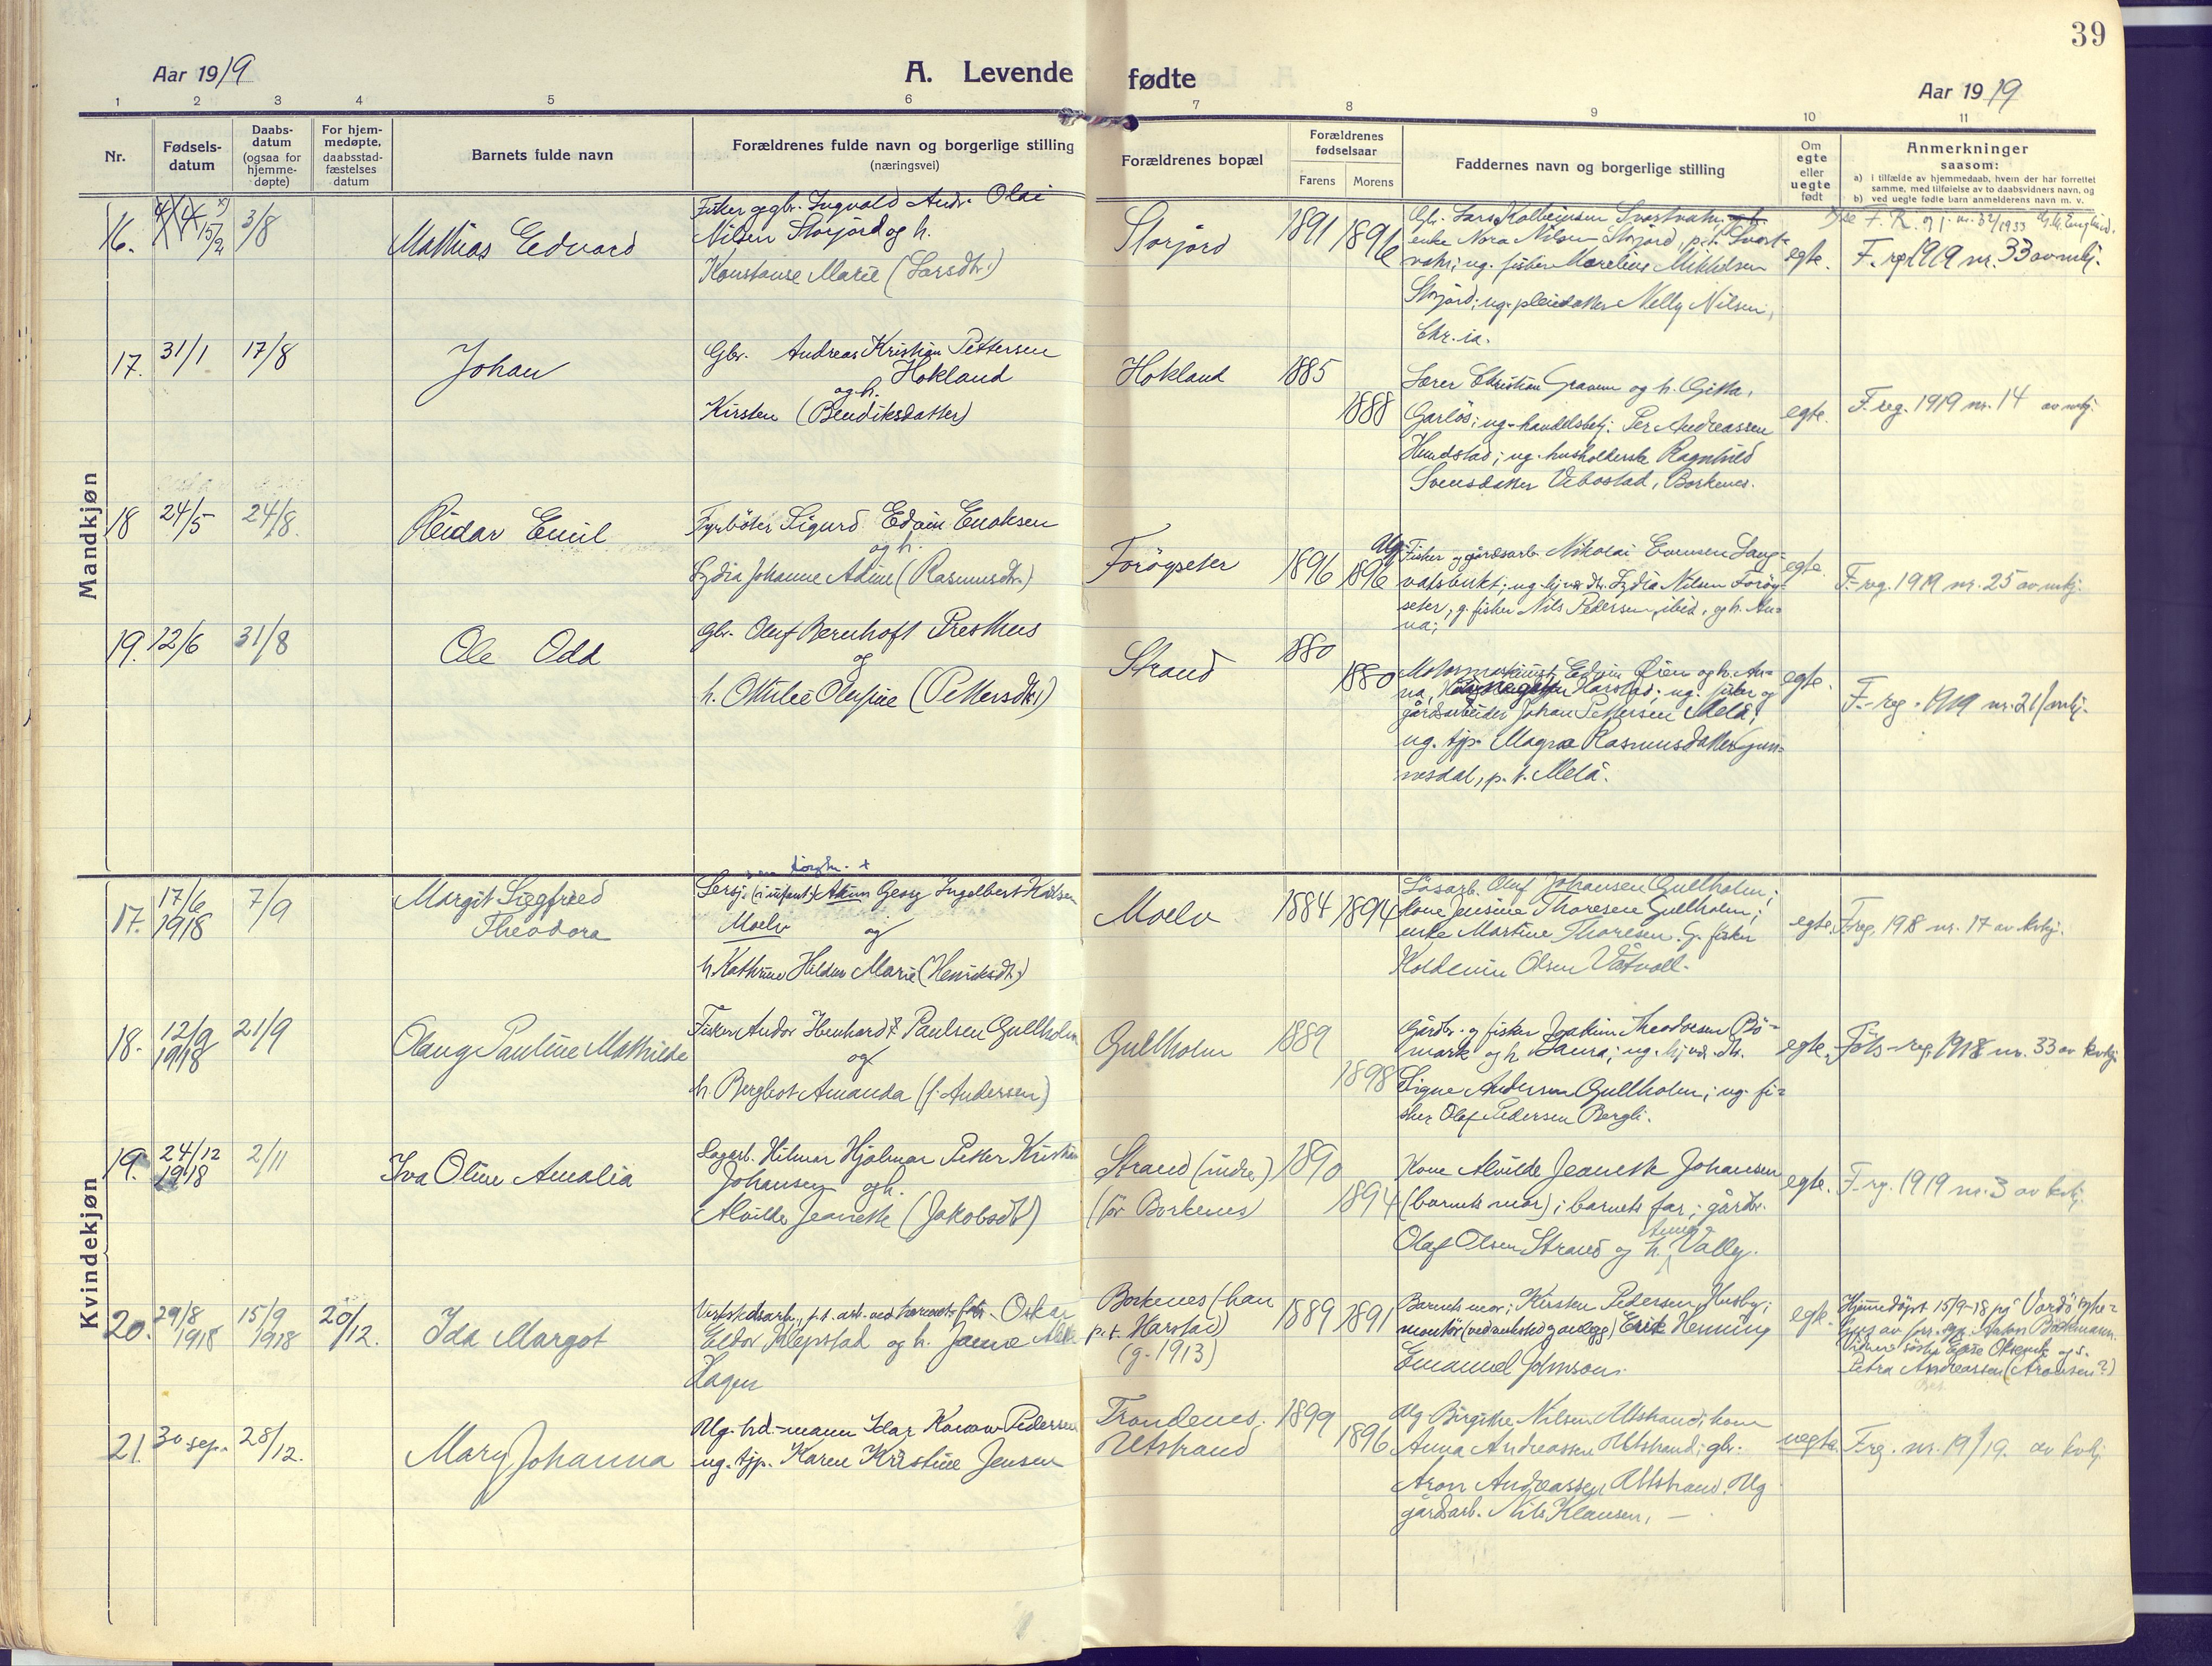 39
Aar 1919
A. Levende fødte
Aar 1919
1 2 3 4 5 6 7 8 9 10 11
Nr.
Fødsels-
datum
Daabs-
datum
(ogsaa for
hjemme-
døpte)
For hjem-
medøpte,
daabsstad-
fæstelses
datum
Barnets fulde navn
Forældrenes fulde navn og borgerlige stilling
(næringsvei)
Forældrenes bopæl
Forældrenes
fødselsaar
Farens Morens
Faddernes navn og borgerlige stilling
Om
egte
eller
uegte
født
Anmerkninger
saasom:
a) I tilfælde av hjemmedaab, hvem der har forrettet
samme, med tilføielse av to daabsvidners navn, og
b) ved uegte fødte barn anmelderens navn m. v.
Mandkjøn
16. 15/2 3/8
Mathias Edvard
Fisker og gbr. Ingvald Andr. Olai
Nilsen Storjord og h.
Konstanse Marie (Larsdtr.)
Storjord
1891 1896
enke Nora Nilsen Storjord, p.t. Svart-
vatn; ug. fisker Marelius Mikkelsen
Storjord; ug. pleiedatter Nelly Nilsen,
Chr.ia.
egte.
F. reg. 1919 nr. 33 av mkj.
17. 31/1 17/8
Johan
Gbr. Andreas Kristian Pettersen
Hokland
og h.
Kirsten (Bendiksdatter)
Hokland
1885
1888
Lærer Christian Gravem og h. Gitta,
Garløs; ug. handelsbetj. Per Andreassen
Hundstad; ug. husholderske Ragnhild
Svensdatter Vebostad, Borkenes.
egte.
F. reg. 1919 nr. 14 av mkj.
18 24/5 24/8.
Reidar Emil
Fyrbøter Sigurd Edvin Enoksen
og h.
Lydia Johanne Adine (Rasmusdtr.)
Forøyseter
1896 1896
Fisker og gårdsarb. Nikolai Evensen Lang-
vatsbukt; ug. hjvær. dtr. Lydia Nilsen Forøy-
seter; g. fisker Nils Pedersen, ibid, og h. An-
na;
egte.
F.-reg. 1919 nr. 25 av mkj.
19. 12/6 31/8
Ole Odd
Gbr. Oluf Bernhoft Presthus
og
h. Ottilie Olufine (Pettersdtr.)
Strand
1880
1880
Motormaskinist Edvin Øien og h. An-
na, Harstad; ug. fisker og
gårdsarbeider Johan Pettersen Melå;
ug. tjp. Magna Rasmusdatter Gun-
nesdal, p.t. Melå.
egte.
F.-reg. 1919 nr. 21 mkj.
Kvindekjøn
17. 17/6
1918
7/9
Margit Siegfried
Theodora
Sersj. Georg Ingelbert Karlsen
Moelv og
h. Kathrine Hildur Marie (Henriksdtr.)
Moelv
1884 1894
Løsarb. Oluf Johansen Gullholm;
kone Jensine Thoresen Gullholm;
enke Martine Thoresen. G. fisker
Koldevin Olsen Våtvoll.
egte.
F.reg. 1918 nr. 17 av kvkj.
18. 12/9
1918
21/9
Olaug Pauline Mathilde
Fisker Andor Paulsen Gullholm
og
h. Bergljot Amanda (f. Andersen)
Gullholm
1889
1898
Gårdbr. og fisker Joakim Theodorsen Bø-
mark og h. Laura; ug. hjvær. dtr.
Signe Andersen Gullholm; ug. fi-
sker Olaf Pedersen Bergli.
egte.
Føds-reg. 1918 nr. 33 av kvkj.
19. 24/12
1918
2/11
Iva Oline Amalia
Lagarb. Hilmar Hjalmar Petter Kristian
Johansen og h.
Alvilde Jeanette (Jakobsdtr)
Strand (indre)
(før Borkenes)
1890
1894
Kone Alvilde Jeanette Johansen
(barnets mor); barnets far; gårdbr.
Olaf Olsen Strand og h. Anna Vally.
egte.
F.-reg. 1919 nr. 3 av kvkj.
20. 29/8
1918
15/9
1918
20/12.
Ida Margot
Oskar
Eldor Klepstad og h. Janna
Hagen
Borkenes (han
p.t. Harstad)
(g. 1913)
1889 1891
Barnets mor; Kirsten Pedersen Husby;
montør (ved anlegg) Erik Henning
Emanuel Johnson.
egte.
Hjemmedøpt 15/9-18 på Vardø syke-
hus av
Petra Andreassen (Aronsen?)
21. 30 sep. 28/12.
Mary Johanna
Ug. hd.-mann Idar Pedersen
ug. tjp. Karen Kristine Jensen
Trondenes.
Utstrand
1899
1896
Ug Birgithe Nilsen Utstrand; kone
Anna Andreassen Utstrand; gbr.
Aron Andreassen Utstrand. Ug
gårdsarb. Nils Klausen, —
uegte.
F.reg. nr. 19/19. av kvkj.